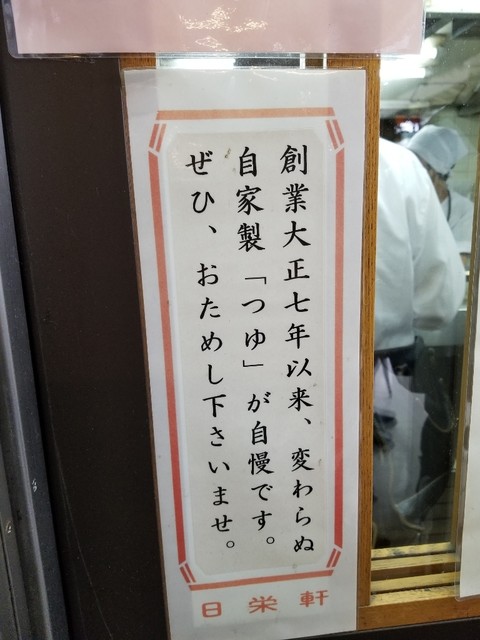 創業大正七年以来、変わらぬ
自家製「つゆ」が自慢です。
ぜひ、おためし下さいませ。
日栄軒